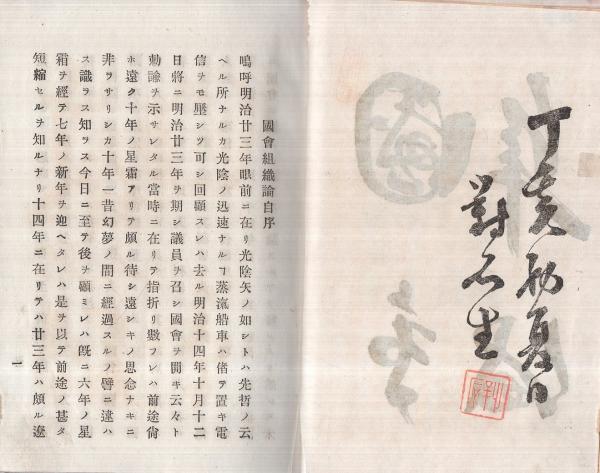 丁亥初夏日
對石生
國會組織論自序
嗚呼明治廿三年眼前ニ在リ光陰矢ノ如シトハ先哲ノ云
ヘル所ナルカ光陰ノ迅速ナルヿ蒸滊船車ハ偖テ置キ電
信ヲモ壓シツ可シ回顧スレハ去ル明治十四年十月十二
日將ニ明治廿三年ヲ期シ議員ヲ召シ國會ヲ開キ云々ト
勅諭ヲ示サレタル當時ニ在リテ指折リ數フレハ前途尙
ホ遠ク十年ノ星霜アリテ頗ル待シ遠シキノ思念ナキニ
非ヲサリシカ十年一昔幻夢ノ間ニ經過スルノ譬ニ違ハ
ス識ラス知ラス今日ニ至テ後ヲ顧ミレハ旣ニ六年ノ星
霜ヲ經テ七年ノ新年ヲ迎ヘタレハ是ヲ以テ前途ノ甚タ
短縮セルヲ知ルナリ十四年ニ在リテハ廿三年ハ頗ル遼
一